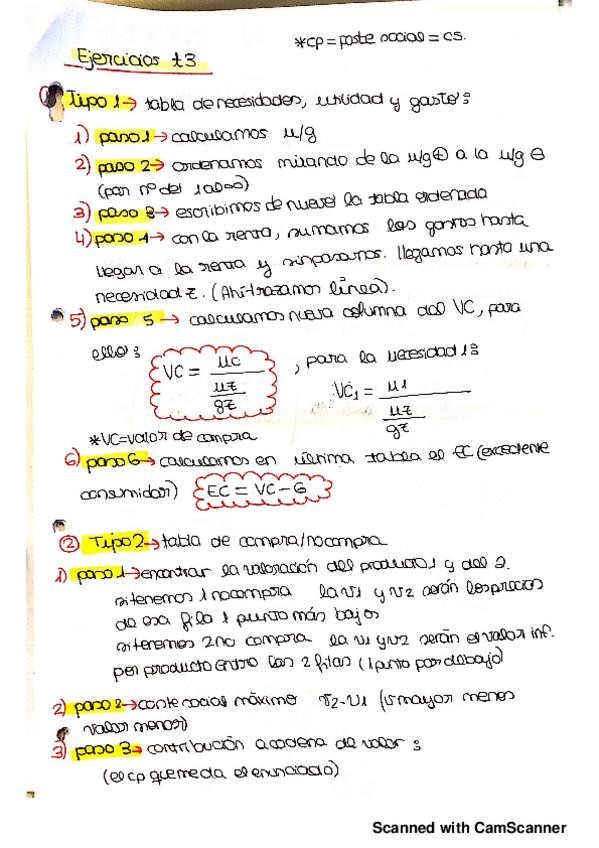 *cp = coste social = cs.
Ejercicios t3
① Tipo 1 → tabla de necesidades, utilidad y gasto:
1) paso 1 → calculamos u/g
2) paso 2 → ordenamos mirando de la u/g ⊕ a la u/g ⊖
(por nº del 1 al ∞)
3) paso 3 → escribimos de nuevo la tabla ordenada
4) paso 4 → con la renta, sumamos los gastos hasta
llegar a la renta y sin pasarnos. llegamos hasta una
necesidad z. (Ahí trazamos línea).
5) paso 5 → calculamos nueva columna del VC, para
ello: VC = uc / (uz / gz) , para la necesidad 1:
VC₁ = u1 / (uz / gz)
*VC=valor de compra
6) paso 6 → calculamos en última tabla el EC (excedente
consumidor) EC = VC - G
② Tipo 2 → tabla de compra/no compra
1) paso 1 → encontrar la valoración del producto 1 y del 2.
si tenemos 1 no compra la v1 y v2 serán los precios
de esa fila 1 punto más bajos
si tenemos 2 no compra la v1 y v2 serán el valor inf.
por producto entre las 2 filas (1 punto por debajo)
2) paso 2 → coste social máximo v2-v1 (v mayor menos
valor menor)
3) paso 3 → contribución a cadena de valor:
(el cp que me da el enunciado)
Scanned with CamScanner